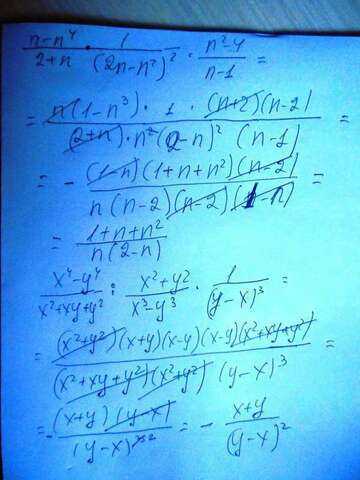 (n-n⁴)/(2+n) · 1/(2n-n²)² · (n²-4)/(n-1) =
= (n(1-n³) · 1 · (n+2)(n-2))/((2+n) · n²(2-n)² (n-1)) =
= - ((1-n)(1+n+n²)(n-2))/(n(n-2)(n-2)(1-n)) =
= (1+n+n²)/(n(2-n))
(x⁴-y⁴)/(x²+xy+y²) : (x²+y²)/(x³-y³) · 1/(y-x)³ =
= ((x²+y²)(x+y)(x-y)(x-y)(x²+xy+y²))/((x²+xy+y²)(x²+y²)(y-x)³) =
= ((x+y)(y-x))/((y-x)³²) = - (x+y)/(y-x)²